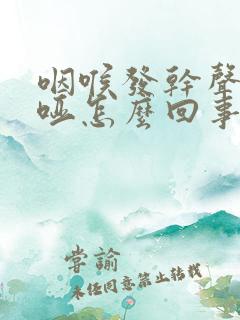 咽喉發幹聲
啞怎麼回事
掌諭
未经同意禁止转载